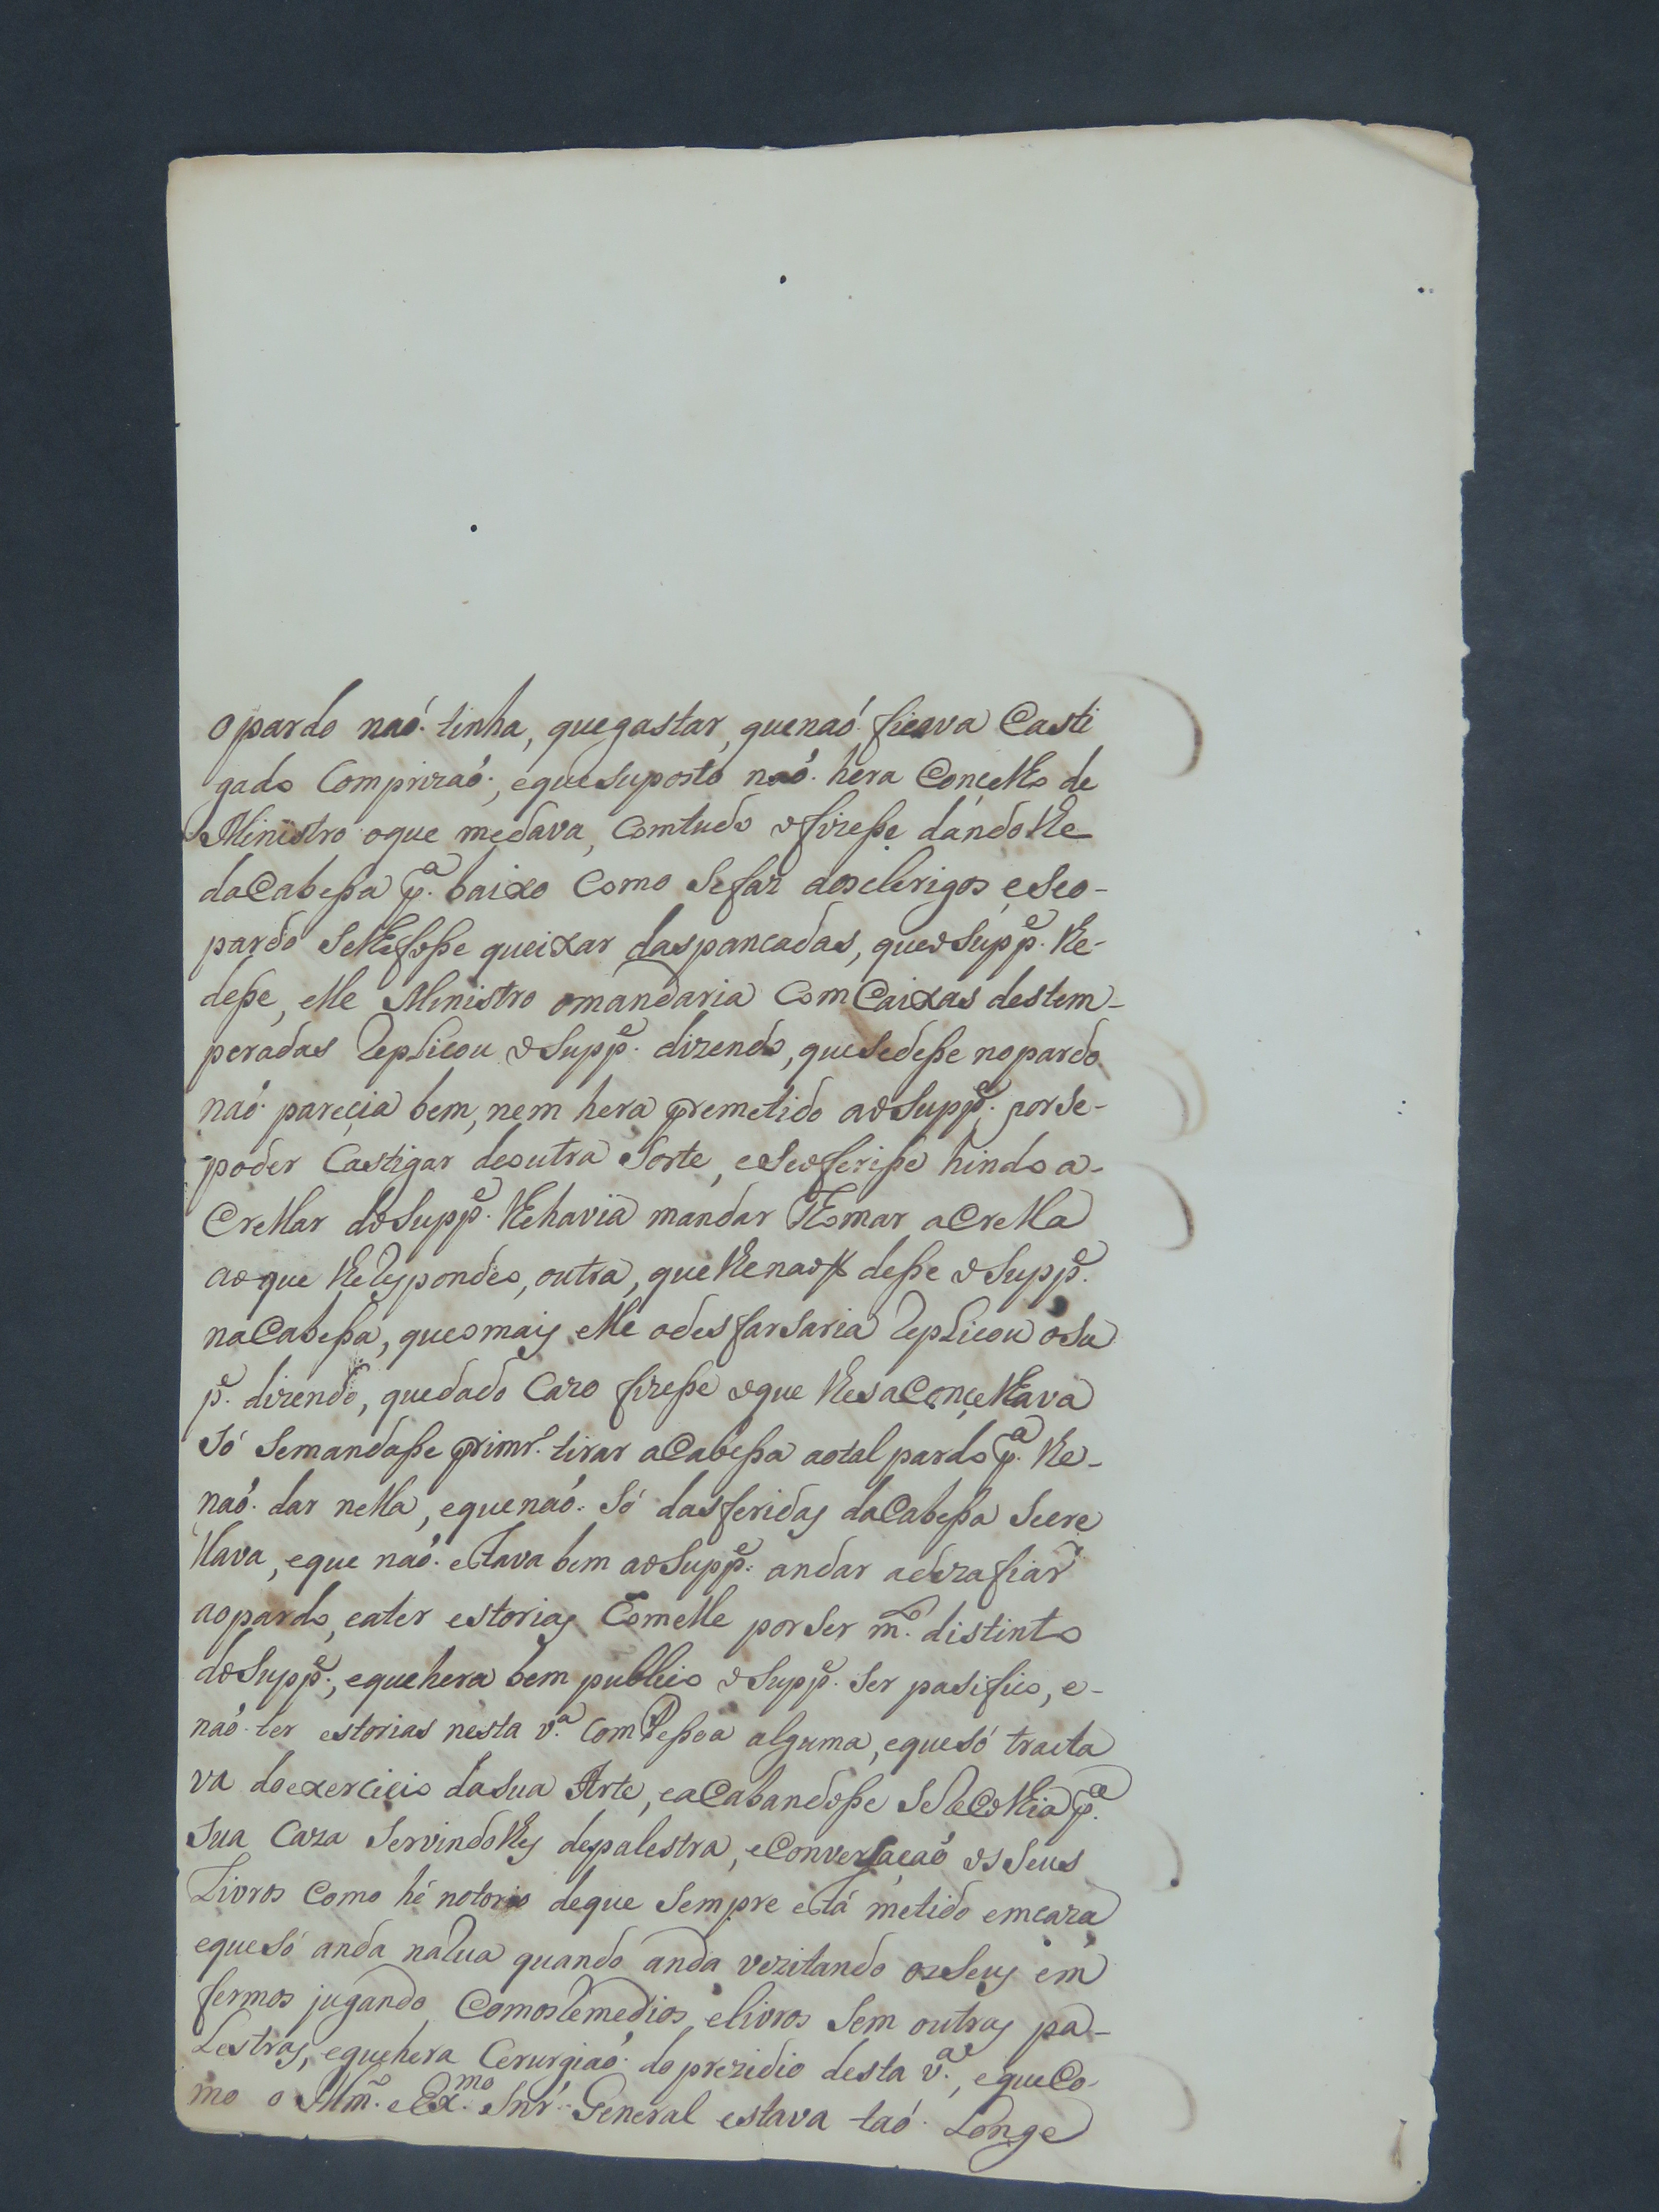 o pardo naó. tinha, que gastar, que naó ficava Casti
gado Comprizaó., eque suposto naó. hera Conçelho de
Ministro oque medava, Comtudo o fizeße dándolhe
daCabeßa p.ª baixo Como Sefaz aosclerigos, eSeo-
pardo Selhefoße queixar daspancadas, queoSupp.e lhe-
deße, elle Ministro omandaria ComCaixas destem-
peradas Replicou oSupp.e dizendo, queSedeße nopardo
naó. pareçia bem, nem hera premetido aoSupp.e, porSe-
poder Castigar deoutra Sorte, eSeoferiße hindo a-
Crellar doSupp.e lhehavia mandar Tomar aCrella
aoque lheRespondeo, outra, que lhenaó deße oSupp.e
naCabeßa, queomais elle odesfarsaria Replicou oSu
p.e dizendo, quedado Cazo fizeße oque lhesaConçelhava
Só Semandaße primr.o tirar aCabeßa aotal pardo p.ª lhe-
naó. dar nella, equenaó. Só dasferidas daCabeßa Secre
llava, eque naó. estava bem aoSupp.e andar adezafiar
aopardo, eater estorias Comelle porSer m.to distinto
doSupp.e, equehera bem publico oSupp.e Ser pasifico, e-
naó. ter estorias nesta v.ª ComPeßoa alguma, equesó tracta
va doexercicio dasua Arte, eaCabandoße SeReColhia p.ª
Sua Caza Servindolhes depalestra, eConversaçaó osSeus
Livros Como hé notorio deque Sempre está metido emcaza
equesó anda naRua quando anda vezitando osSeus em
fermos jugando ComosRemedios, elivros Sem outras pa-
Lestras, equehera Cerurgiaó. do prezidio desta v.ª, equeCo-
mo o Illm.o eEx.mo Snr. General estava taó. Longe